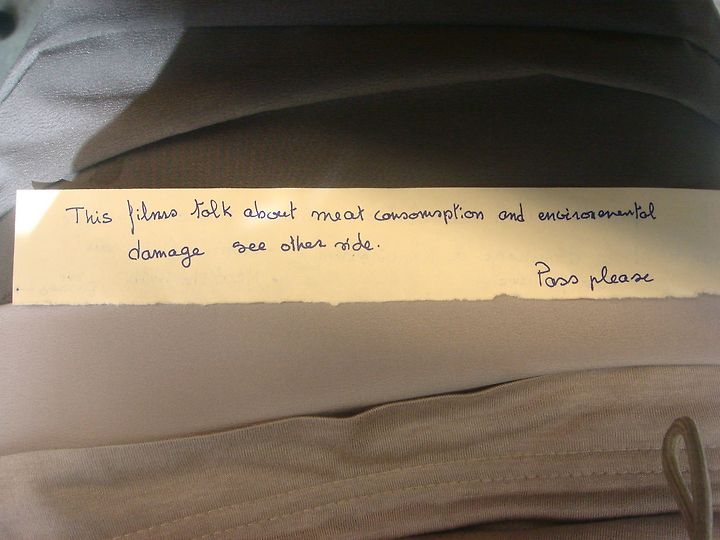 This films talk about meat consomsption and environemental
damage see other side.
Pass please